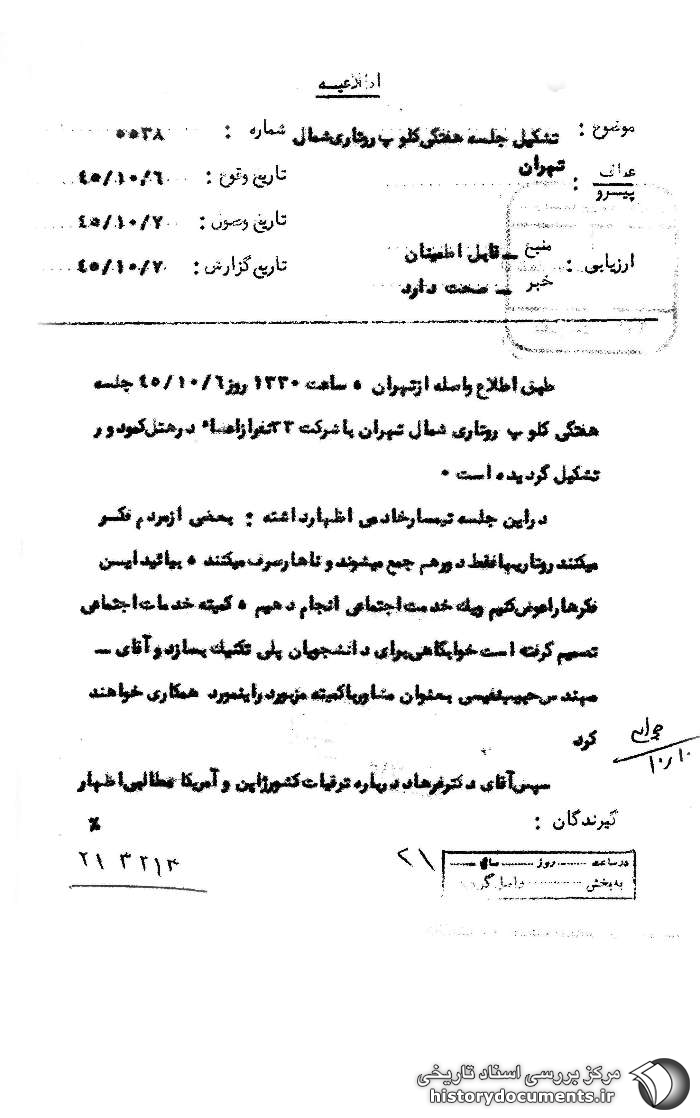 اطلاعیه
موضوع : تشکیل جلسه هفتگی کلوپ روتاری شمال تهران
شماره : ۵۵۳۸
عطف
پیرو :
تاریخ وقوع : ۴۵/۱۰/۶
تاریخ وصول : ۴۵/۱۰/۷
ارزیابی : منبع ـ قابل اطمینان
خبر ـ صحت دارد
تاریخ گزارش : ۴۵/۱۰/۷۰
طبق اطلاع واصله از تهران ۰ ساعت ۱۳۳۰ روز ۴۵/۱۰/۶ جلسه
هفتگی کلوپ روتاری شمال تهران با شرکت ۳۳ نفر از اعضاء در هتل کمودور
تشکیل گردیده است ۰
در این جلسه تیمسار خادمی اظهار داشته : بعضی از مردم فکر
میکنند روتاریها فقط دور هم جمع میشوند و ناهار صرف میکنند ۰ بیائید ایـن
فکرها را عوض کنیم ویک خدمت اجتماعی انجام دهیم ۰ کمیته خدمات اجتماعی
تصمیم گرفته است خوابگاهی برای دانشجویان پلی تکنیک بسازد و آقای ـ
مهندس حبیب نفیسی بعنوان مشاور با کمیته مزبور در اینمورد همکاری خواهند
کرد
۱۰/۱۰
سپس آقای دکتر فرهاد درباره ترقیات کشور ژاپن و آمریکا مطالبی اظهار
گیرندگان :
٪
در ساعت ........ روز ........ سال ـ
به بخش ........ واصل گردید
۲۱
۲۱ ۳ ۲۱۴
مرکز بررسی اسناد تاریخی
historydocuments.ir